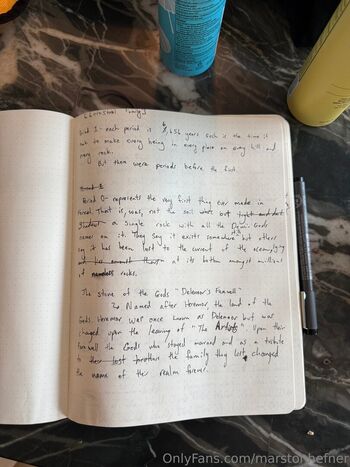 Period 1 - each period is 4,656 years such is the time it
took to make every being in every place on every hill and
every rock.
But there were periods before the first.
Period 0 - represents the very first thing ever made in
That is, was, not the soil what but
a single rock with all the Demi-Gods
names on it. They say it still exists somewhere but others
say it has been lost to the current of the
at its bottom amongst millions
of nameless rocks.
The stone of the Gods "Delenor's Farewell"
Named after Heremor, the land of the
Gods. Heremor was once known as Delenor but was
changed upon the leaving of "The Artists". Upon their
farewell the Gods who stayed mourned and as a tribute
to the family they lost changed
the name of their realm forever.
OnlyFans.com/marstonhefner